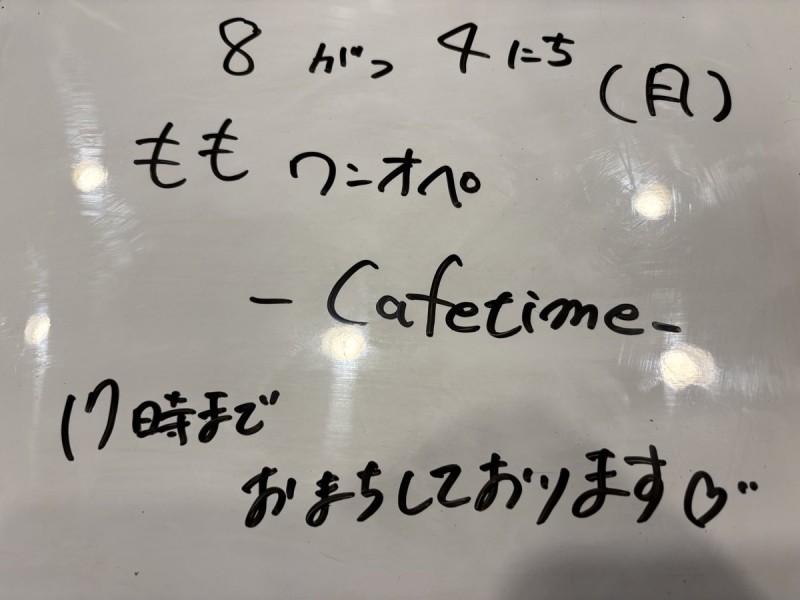 8 がつ 4 にち (月)
もも ワンオペ
- Cafetime -
17時まで
おまちしております♡